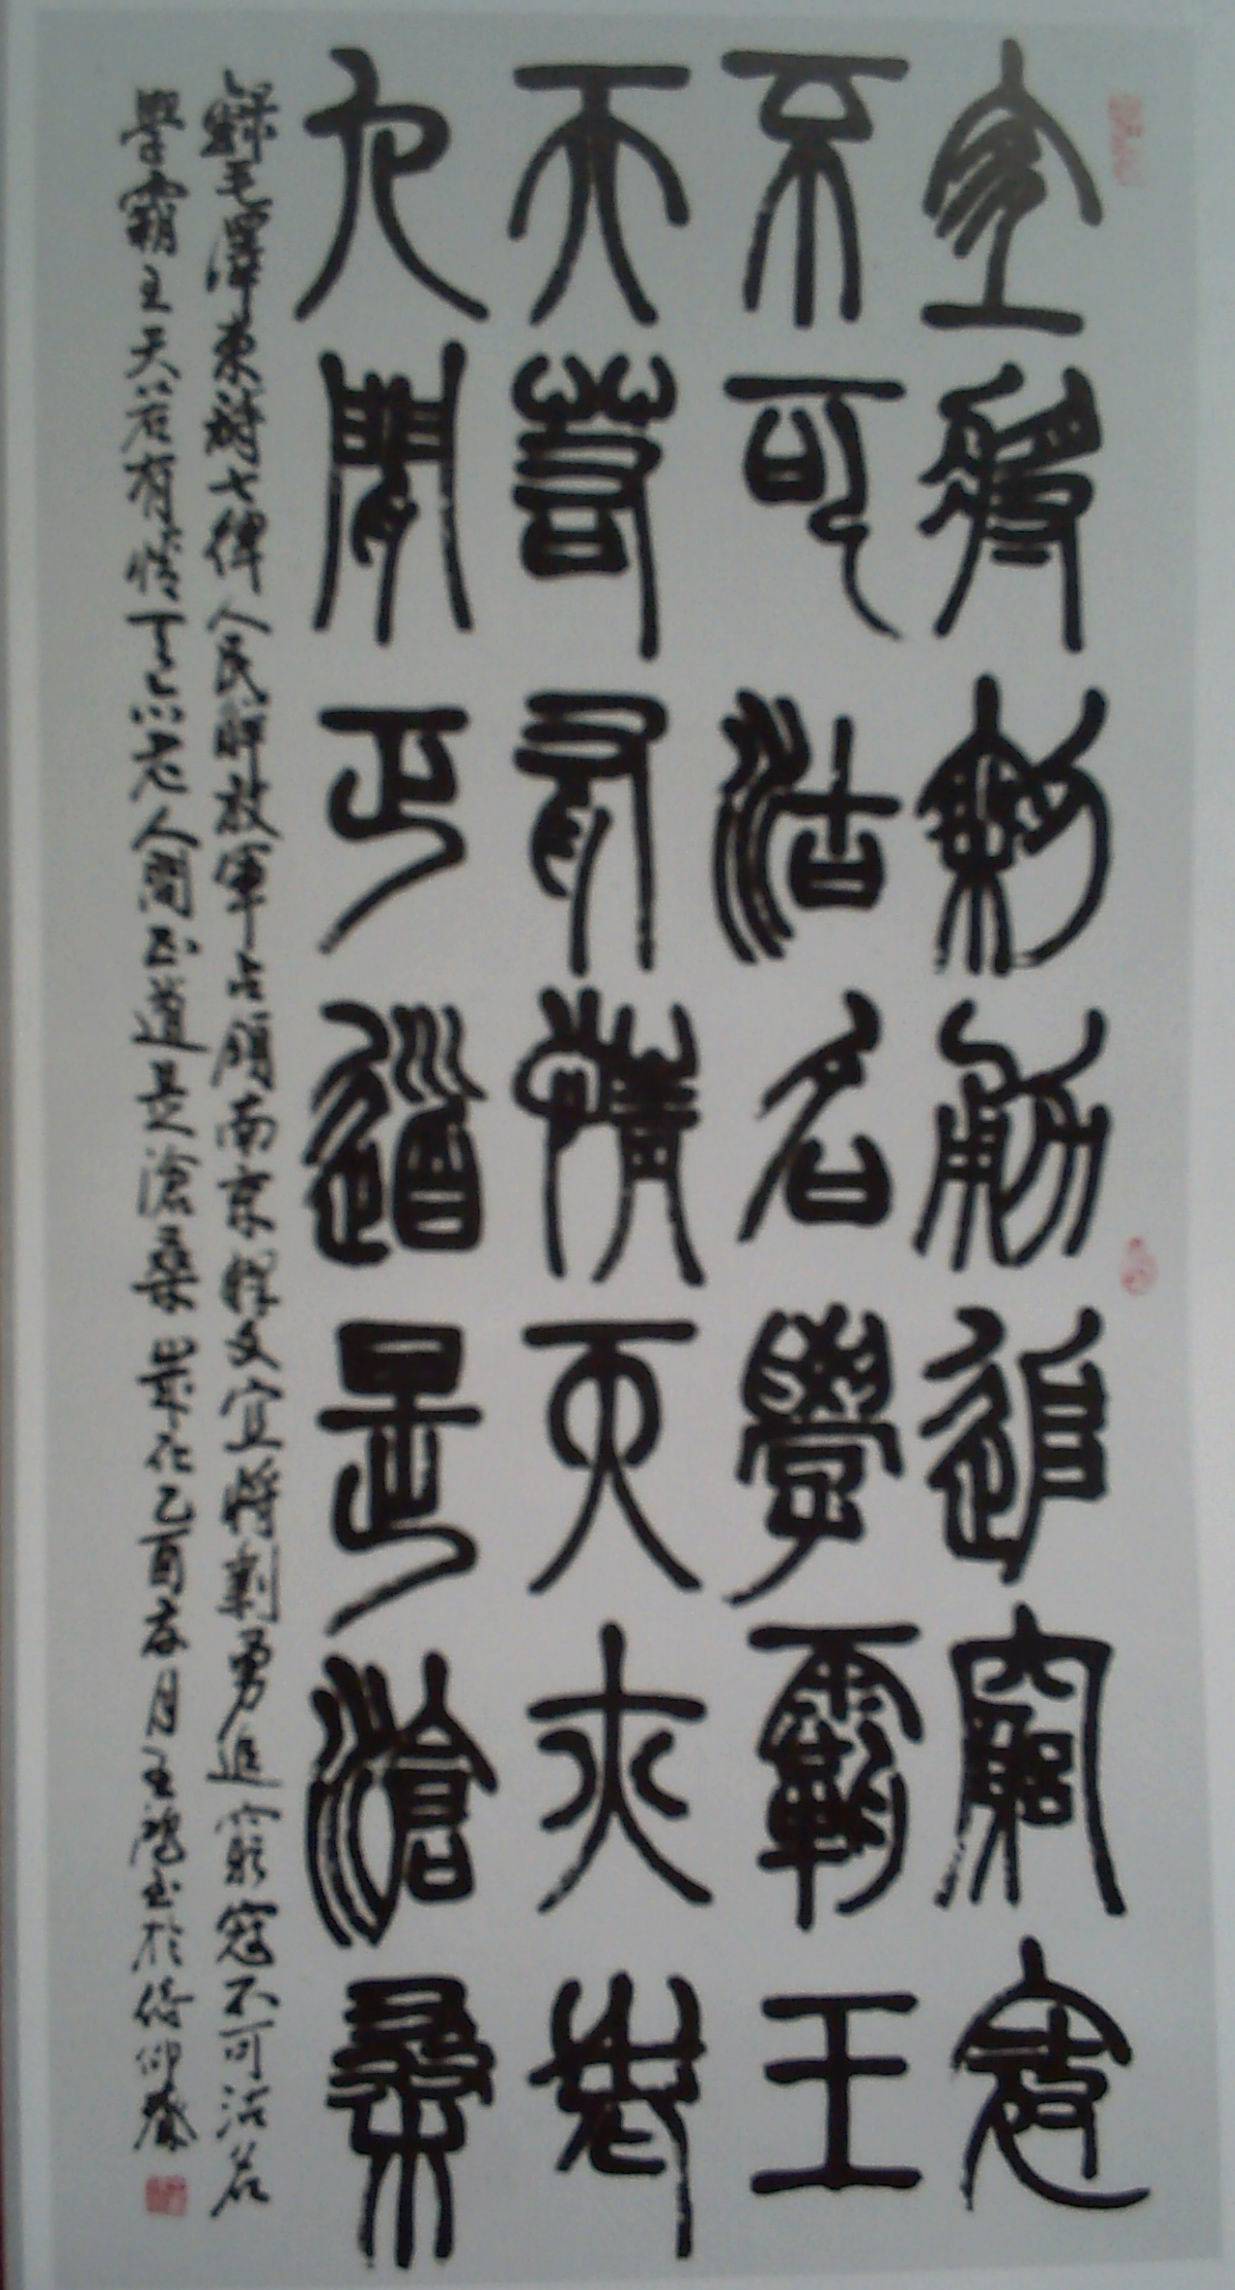 宜將剩勇追窮寇
不可沽名學霸王
天若有情天亦老
人間正道是滄桑
錄毛澤東詩七律人民解放軍占領南京釋文宜將剩勇追窮寇不可沽名
學霸王天若有情天亦老人間正道是滄桑歲在乙酉春月王書於仰